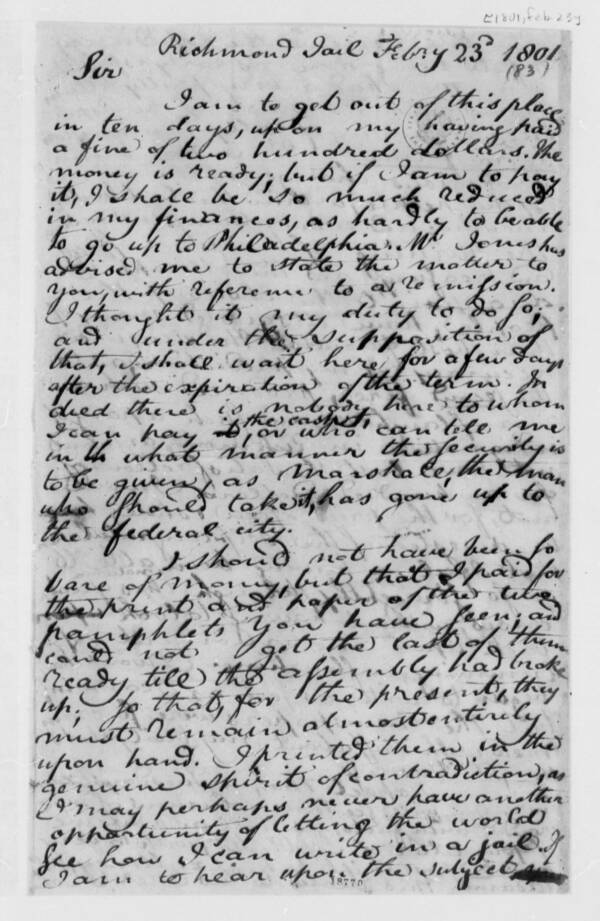 [1801, Feb. 23]
Richmond Jail Febry 23d 1801.
(83)
Sir
I am to get out of this place
in ten days, upon my having paid
a fine of two hundred dollars. The
money is ready; but if I am to pay
it, I shall be so much reduced
in my finances, as hardly to be able
to go up to Philadelphia. Mr Jones has
advised me to state the matter to
you, with reference to a remission.
I thought it my duty to do so;
and under the supposition of
that, I shall wait here for a few days
after the expiration of the term. In
deed there is nobody here to whom
I can pay it, the cash, or who can tell me
in what manner the security is
to be given, as Marshall, the man
who should take it, has gone up to
the federal city.
I should not have been so
bare of money, but that I paid for
the print and paper of the two
pamphlets you have seen; and
could not get the last of them
ready till the assembly had broke
up; so that, for the present, they
must remain almost entirely
upon hand. I printed them in the
genuine spirit of contradiction, as
I may perhaps never have another
opportunity of letting the world
see how I can write in a jail. If
I am to hear upon the subject
18770